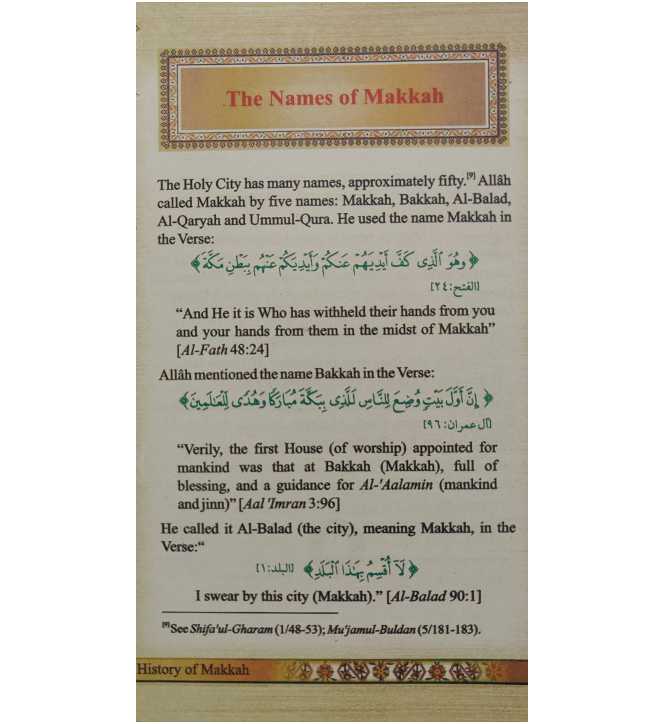 The Names of Makkah
The Holy City has many names, approximately fifty.[9] Allâh
called Makkah by five names: Makkah, Bakkah, Al-Balad,
Al-Qaryah and Ummul-Qura. He used the name Makkah in
the Verse:
﴿ وَهُوَ ٱلَّذِى كَفَّ أَيْدِيَهُمْ عَنكُمْ وَأَيْدِيَكُمْ عَنْهُم بِبَطْنِ مَكَّةَ ﴾
[الفتح: ٢٤]
“And He it is Who has withheld their hands from you
and your hands from them in the midst of Makkah”
[Al-Fath 48:24]
Allâh mentioned the name Bakkah in the Verse:
﴿ إِنَّ أَوَّلَ بَيْتٍ وُضِعَ لِلنَّاسِ لَلَّذِى بِبَكَّةَ مُبَارَكًا وَهُدًى لِّلْعَـٰلَمِينَ ﴾
[آل عمران: ٩٦]
“Verily, the first House (of worship) appointed for
mankind was that at Bakkah (Makkah), full of
blessing, and a guidance for Al-'Aalamin (mankind
and jinn)” [Aal 'Imran 3:96]
He called it Al-Balad (the city), meaning Makkah, in the
Verse:“
﴿ لَآ أُقْسِمُ بِهَـٰذَا ٱلْبَلَدِ ﴾ [البلد: ١]
I swear by this city (Makkah).” [Al-Balad 90:1]
[9] See Shifa'ul-Gharam (1/48-53); Mu'jamul-Buldan (5/181-183).
History of Makkah